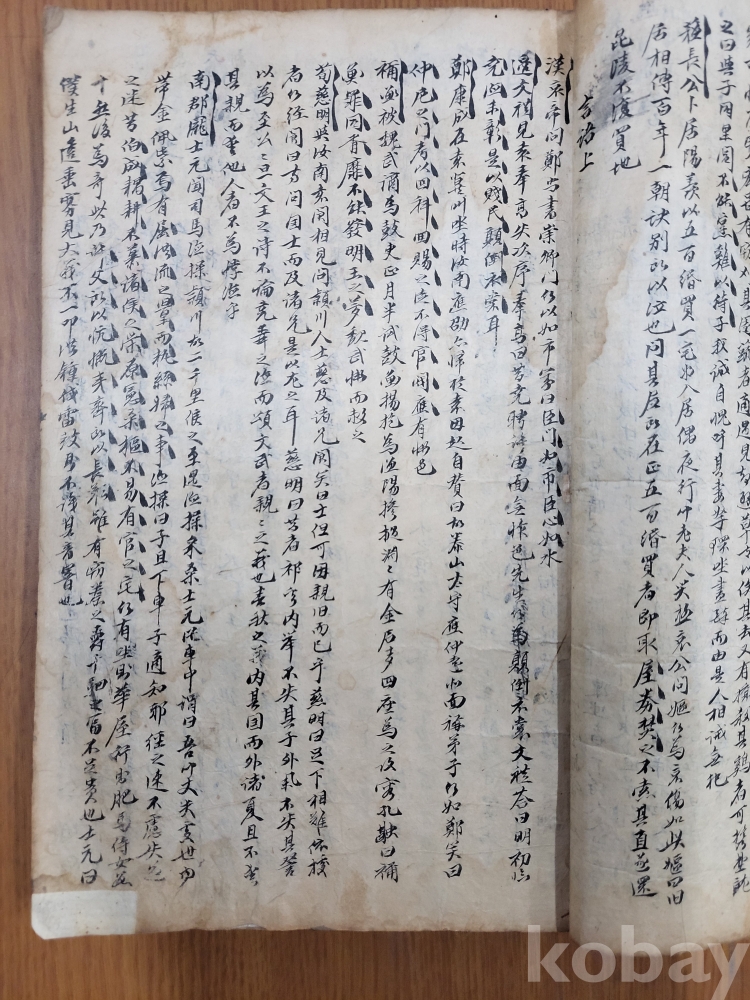 之曰與子同里閈不能濟難以待子我誠自愧呼其妻孥環坐盡歸而由是人相誡無犯
蘓長公卜居陽羨以五百緡買一宅將入居偶夜行村老夫人哭極哀公問嫗何爲哀傷如此嫗曰旧
居相傳百年一朝訣別所以泣也問其居所在正五百緡買者即取屋券焚之不索其直並還
毗陵不復買地
言語上
漢哀帝問鄭尚書崇卿門何以如市崇曰臣門如市臣心如水
邊文禮見袁奉高失次序奉高曰昔堯聘許由面無怍色先生何爲顚倒衣裳文禮答曰明府初臨
堯德未彰是以賤民顚倒衣裳耳
鄭康成在袁坐時汝南應劭亦歸於袁因起自贊曰故泰山太守應仲遠北面稱弟子何如鄭笑曰
仲尼之門考以四科回賜之徒不稱官閥應有慚色
禰衡被魏武謫爲鼓吏正月半試鼓衡揚枹爲漁陽摻撾淵〻有金石声四座爲之改容孔融曰禰
衡罪同胥靡不能發明王之夢魏武慚而赦之
荀慈明與汝南袁閬相見問潁川人士慈明及諸兄閬笑曰士但可因親旧而已乎慈明曰足下相難依據
者何經閬曰方問國士而及諸兄是以尤之耳慈明曰昔者祁奚內擧不失其子外擧不失其讐
以爲至公公旦文王之詩不論堯舜之德而頌文武者親〻之義也春秋之義內其国而外諸夏且不愛
其親而愛他人者不爲悖德乎
南郡龐士元聞司馬德操在潁川故二千里候之至遇德操采桑士元從車中謂曰吾聞丈夫處世當
帶金佩紫焉有屈洪流之量而執絲婦之事德操曰子且下車子適知邪徑之速不慮失道
之迷昔伯成耦耕不慕諸侯之榮原憲桑樞不易有官之宅何有坐則華屋行則肥馬侍女數
十然後爲奇此乃許父所以忼慨夷齊所以長歎雖有竊秦之爵千駟之富不足貴也士元曰
僕生出邊垂寡見大義不一叩洪鐘伐雷鼓則不識其音響也
kobay